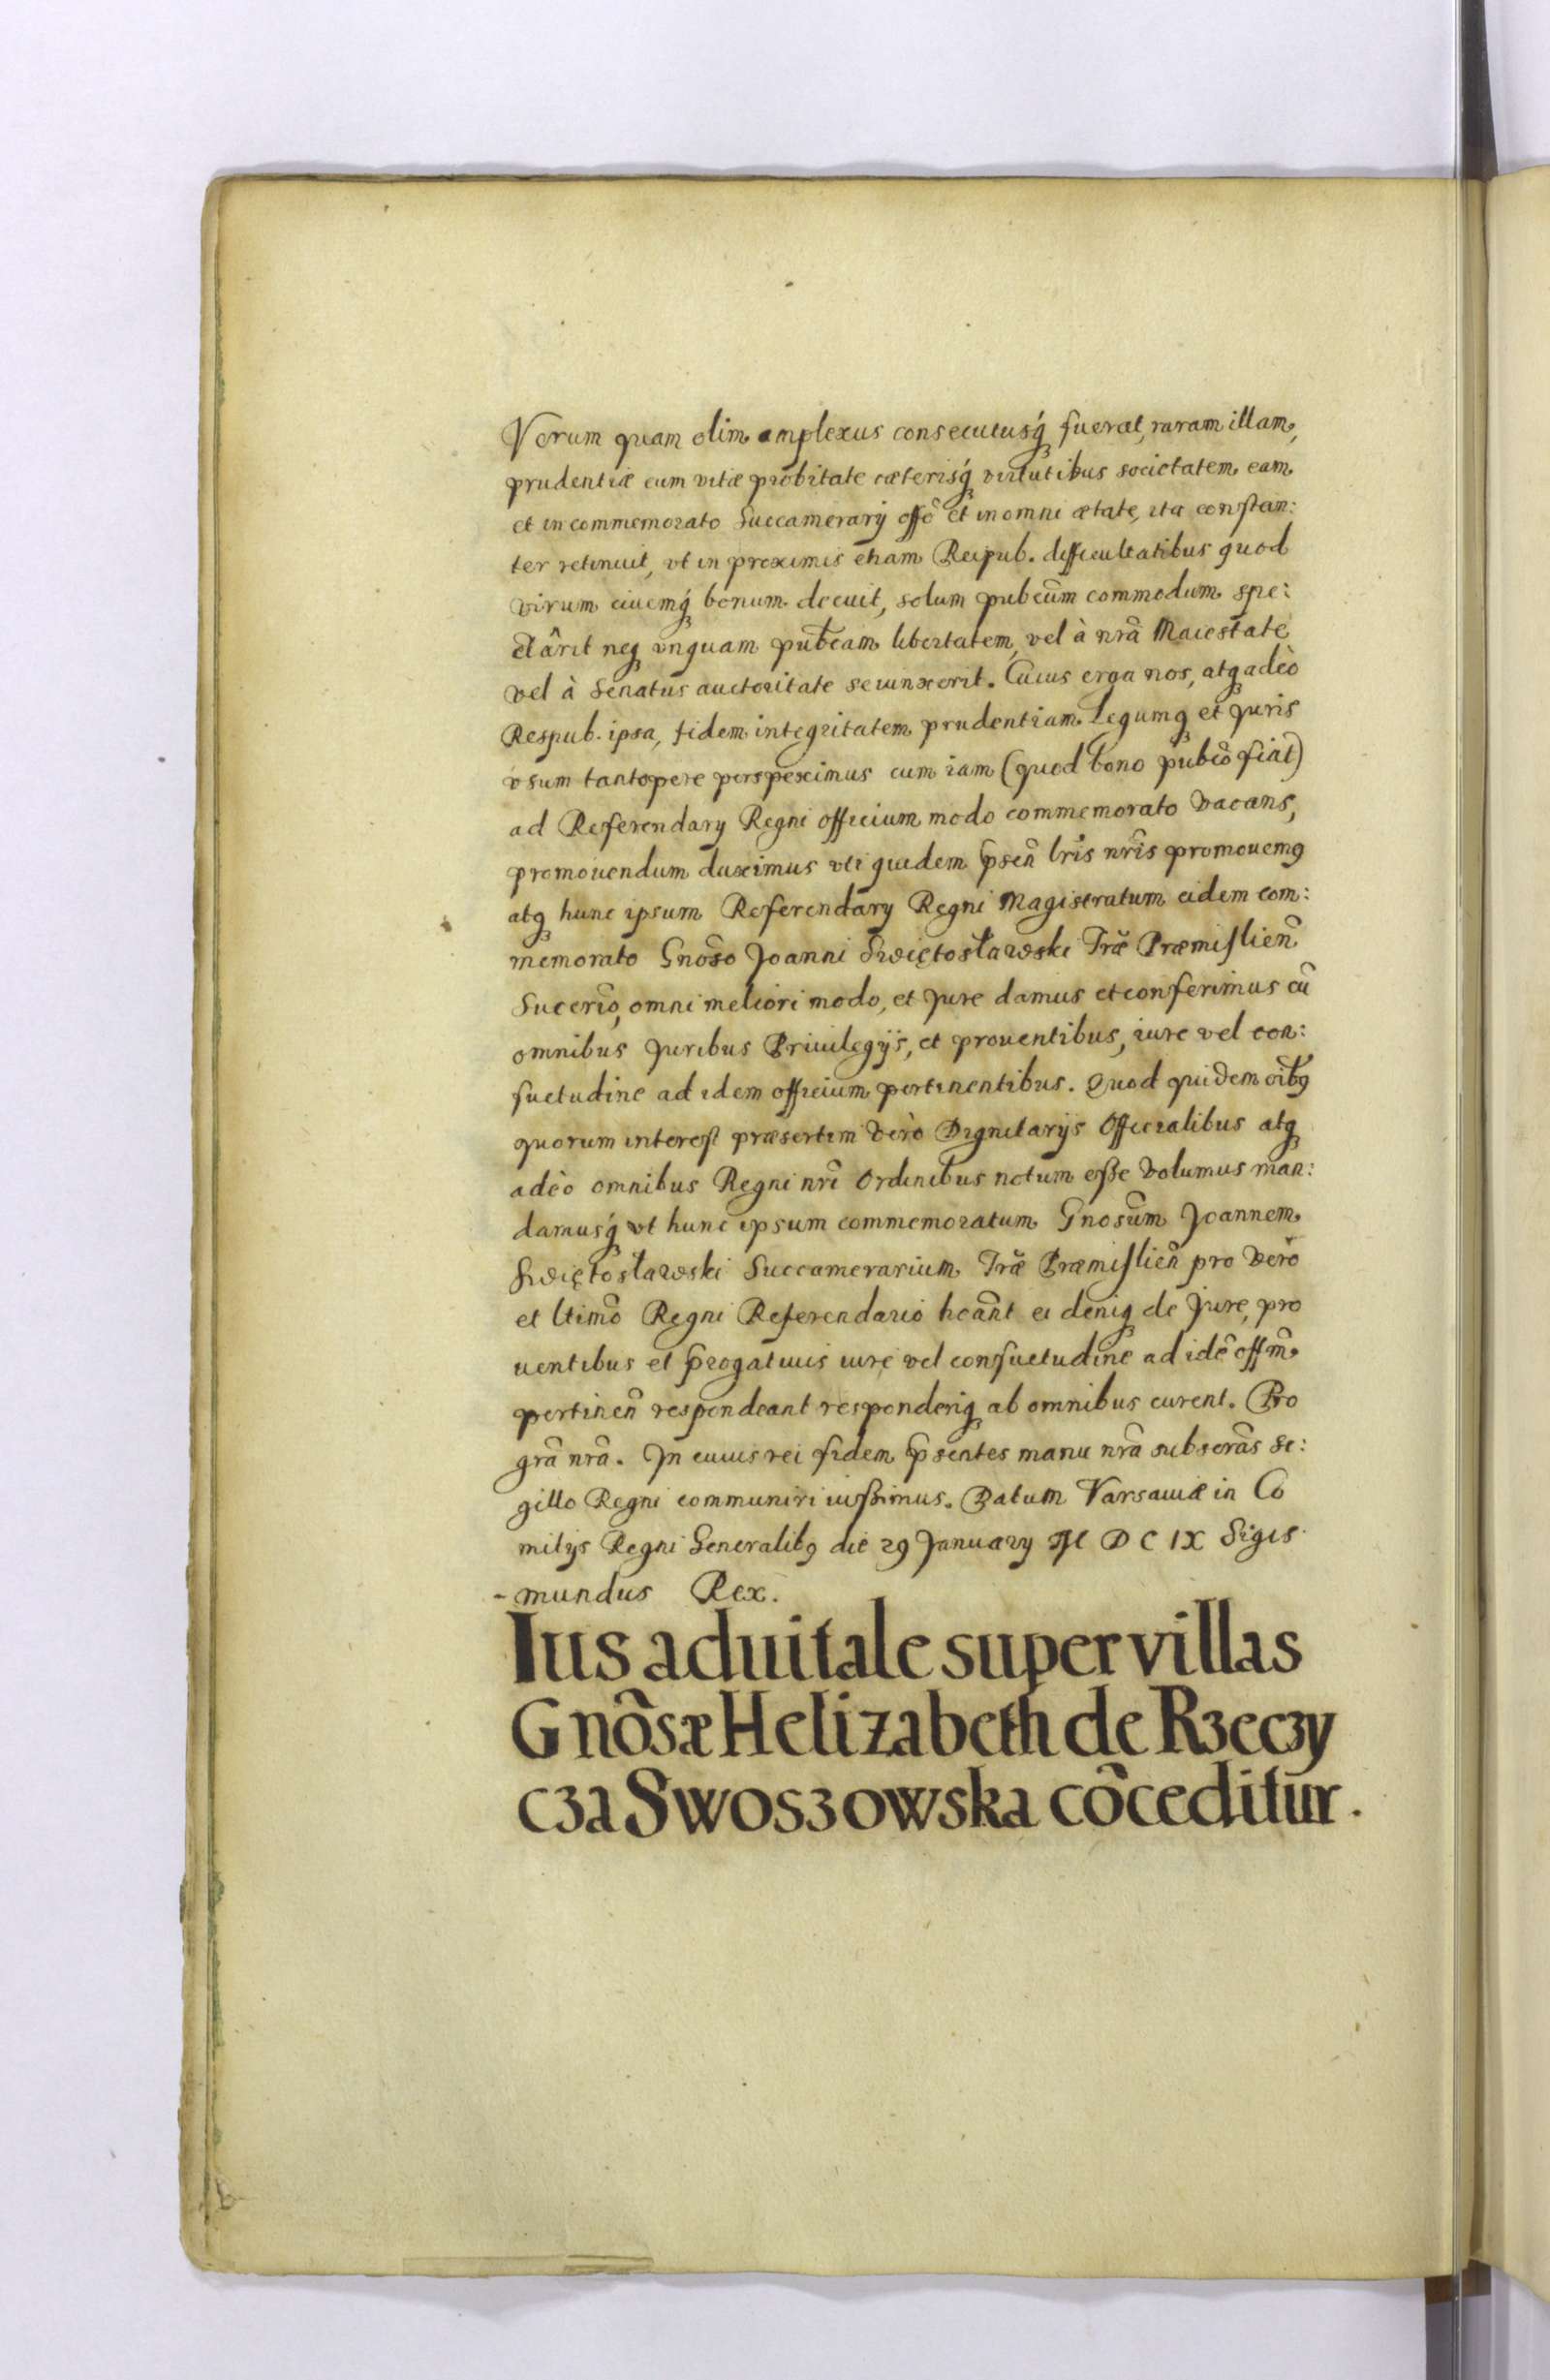 Verum quam olim amplexus consecutusq́ fuerat, raram illam,
prudentiæ cum vitæ probitate cæterisq́ virtutibus societatem eam
et in commemorato Succamerarij offô et in omni ætate, ita constan:
ter retinuit, vt in proximis etiam Reipub. difficultatibus quod
virum ciuemq́ bonum decuit, solum pubcũm commodum spe:
ctârit neq vnquam pubcam libertatem, vel à nrã Maiestate
vel à Senatus auctoritate seiunxerit. Cuius erga nos, atq adèò
Respub. ipsa, fidem integritatem prudentiam Legumq et Juris
vsum tantopere perspeximus cum iam (quod bono pubcõ fiat)
ad Referendarij Regni officium modo commemorato vacans,
promouendum duximus vti quidem p̃sen̂ lrîs nrîs promouemꝰ
atq hunc ipsum Referendarij Regni Magistratum eidem com:
memorato Gnôso Joanni Swiętosławski Træ̃ Præmislien̂
Succrîo, omni meliori modo, et Jure damus et conferimus cũ
omnibus Juribus Priuilegijs, et prouentibus, iure vel con:
suetudine ad idem officium pertinentibus. Quod quidem oîbꝰ
quorum interest præsertim verò Dignitarijs Officialibus atq
adèò omnibus Regni nrî Ordinibus notum esse volumus man:
damusq́ vt hunc ipsum commemoratum Gnosũm Joannem
Swiętosławski Succamerarium Træ̃ Præmislien̂ pro vero
et ltimô Regni Referendario hcânt ei deniq de Jure, pro
uentibus et p̃rogatiuis iure vel consuetudine ad idê offm̂
pertinen̂ respondeant responderiq ab omnibus curent. Pro
grâ nrâ. In cuius rei fidem p̃sentes manu nrâ subscrâs si:
gillo Regni communiri iussimus. Datum Varsauiæ in Co
mitijs Regni Generalibꝰ die 29 January M D C IX Sigis
-mundus Rex.
Ius aduitale super villas
Gnõsæ Helizabeth de Rzeczy
cza Swoszowska cõceditur.